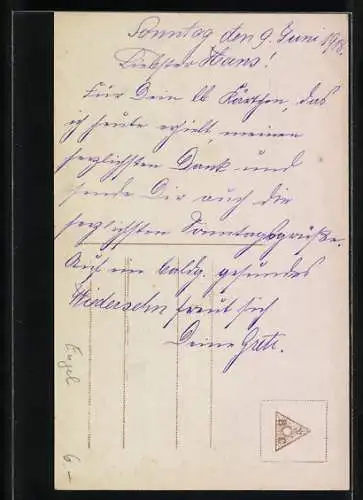 Sonntag den 9. Juni 1918.
Liebster Hans!
Für Dein lb Kärtchen, das
ich heute erhielt, meinen
herzlichsten Dank und
sende Dir auch die
herzlichsten Sonntagsgrüße.
Auf ein baldg. gesundes
Wiedersehn freut sich
Deine Grete.
Engel
6.-